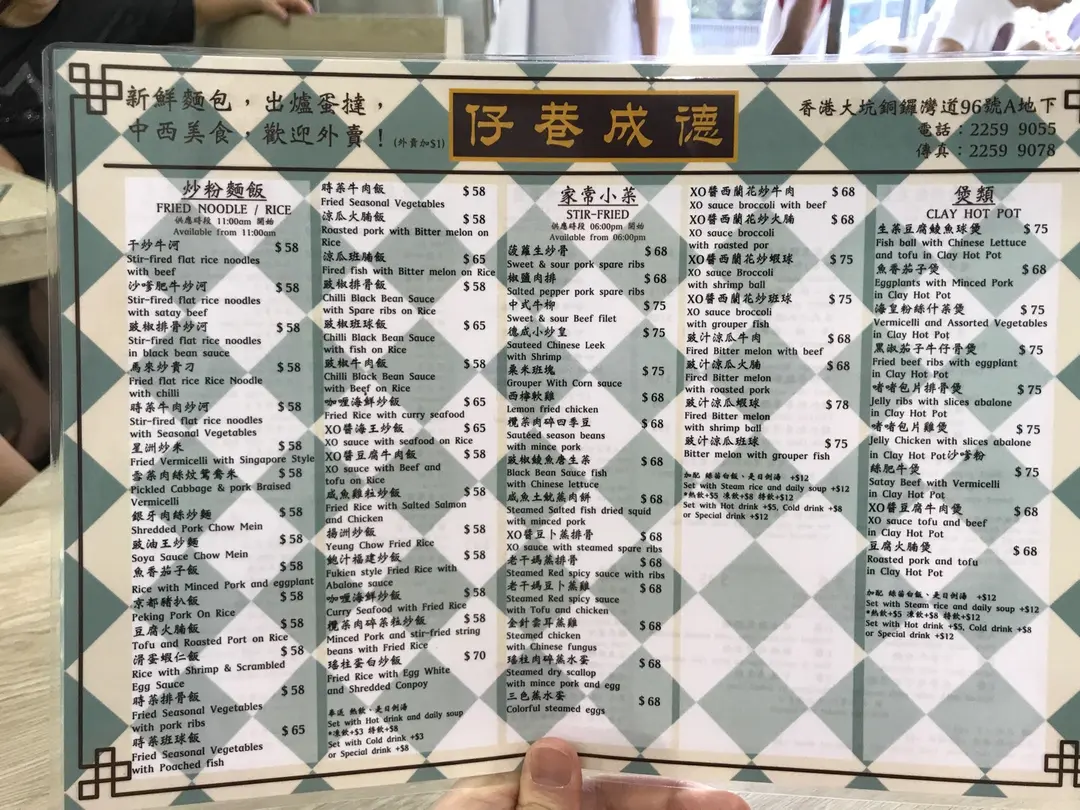 新鮮麵包，出爐蛋撻，
中西美食，歡迎外賣！(外賣加$1)
仔巷成德
香港大坑銅鑼灣道96號A地下
電話：2259 9055
傳真：2259 9078
炒粉麵飯
FRIED NOODLE / RICE
供應時段 11:00am 開始
Available from 11:00am
干炒牛河 $ 58
Stir-fired flat rice noodles
with beef
沙嗲肥牛炒河 $ 58
Stir-fired flat rice noodles
with satay beef
豉椒排骨炒河 $ 58
Stir-fired flat rice noodles
in black bean sauce
馬來炒貴刁 $ 58
Fried flat rice Rice Noodle
with chilli
時菜牛肉炒河 $ 58
Stir-fired flat rice noodles
with Seasonal Vegetables
星洲炒米 $ 58
Fried Vermicelli with Singapore Style
雪菜肉絲炆鴛鴦米 $ 58
Pickled Cabbage & pork Braised
Vermicelli
銀牙肉絲炒麵 $ 58
Shredded Pork Chow Mein
豉油王炒麵 $ 58
Soya Sauce Chow Mein
魚香茄子飯 $ 58
Rice with Minced Pork and eggplant
京都豬扒飯 $ 58
Peking Pork On Rice
豆腐火腩飯 $ 58
Tofu and Roasted Port on Rice
滑蛋蝦仁飯 $ 58
Rice with Shrimp & Scrambled
Egg Sauce
時菜排骨飯 $ 58
Fried Seasonal Vegetables
with pork ribs
時菜班球飯 $ 65
Fried Seasonal Vegetables
with Poached fish
時菜牛肉飯 $ 58
Fried Seasonal Vegetables
涼瓜火腩飯 $ 58
Roasted pork with Bitter melon on
Rice
涼瓜班腩飯 $ 65
Fired fish with Bitter melon on Rice
豉椒排骨飯 $ 58
Chilli Black Bean Sauce
with Spare ribs on Rice
豉椒班球飯 $ 65
Chilli Black Bean Sauce
with fish on Rice
豉椒牛肉飯 $ 58
Chilli Black Bean Sauce
with Beef on Rice
咖喱海鮮炒飯 $ 65
Fried Rice with curry seafood
XO醬海王炒飯 $ 65
XO sauce with seafood on Rice
XO醬豆腐牛肉飯 $ 58
XO sauce with Beef and
tofu on Rice
咸魚雞粒炒飯 $ 58
Fried Rice with Salted Salmon
and Chicken
揚洲炒飯 $ 58
Yeung Chow Fried Rice
鮑汁福建炒飯 $ 58
Fukien style Fried Rice with
Abalone sauce
咖喱海鮮炒飯 $ 58
Curry Seafood with Fried Rice
欖菜肉碎菜粒炒飯 $ 58
Minced Pork and stir-fried string
beans with Fried Rice
瑤柱蛋白炒飯 $ 70
Fried Rice with Egg White
and Shredded Conpoy
奉送 熱飲、是日例湯
Set with Hot drink and daily soup
*凍飲+$3 特飲+$8
Set with Cold drink +$3
or Special drink +$8
家常小菜
STIR-FRIED
供應時段 06:00pm 開始
Available from 06:00pm
菠蘿生炒骨 $ 68
Sweet & sour pork spare ribs
椒鹽肉排 $ 68
Salted pepper pork spare ribs
中式牛柳 $ 75
Sweet & sour Beef filet
德成小炒皇 $ 75
Sauteed Chinese Leek
with Shrimp
粟米班塊 $ 75
Grouper With Corn sauce
西檸軟雞 $ 68
Lemon fried chicken
欖菜肉碎四季豆 $ 68
Sautéed season beans
with mince pork
豉椒鯪魚唐生菜 $ 68
Black Bean Sauce fish
with Chinese lettuce
咸魚土魷蒸肉餅 $ 68
Steamed Salted fish dried squid
with minced pork
XO醬豆卜蒸排骨 $ 68
XO sauce with steamed spare ribs
老干媽蒸排骨 $ 68
Steamed Red spicy sauce with ribs
老干媽豆卜蒸雞 $ 68
Steamed Red spicy sauce
with Tofu and chicken
金針雲耳蒸雞 $ 68
Steamed chicken
with Chinese fungus
瑤柱肉碎蒸水蛋 $ 68
Steamed dry scallop
with mince pork and egg
三色蒸水蛋 $ 68
Colorful steamed eggs
XO醬西蘭花炒牛肉 $ 68
XO sauce broccoli with beef
XO醬西蘭花炒火腩 $ 68
XO sauce broccoli
with roasted por
XO醬西蘭花炒蝦球 $ 75
XO sauce Broccoli
with shrimp ball
XO醬西蘭花炒班球 $ 75
XO sauce broccoli
with grouper fish
豉汁涼瓜牛肉 $ 68
Fired Bitter melon with beef
豉汁涼瓜火腩 $ 68
Fired Bitter melon
with roasted pork
豉汁涼瓜蝦球 $ 78
Fired Bitter melon
with shrimp ball
豉汁涼瓜班球 $ 75
Bitter melon with grouper fish
加配 絲苗白飯、是日例湯 +$12
Set with Steam rice and daily soup +$12
*熱飲+$5 凍飲+$8 特飲+$12
Set with Hot drink +$5, Cold drink +$8
or Special drink +$12
煲類
CLAY HOT POT
生菜豆腐鯪魚球煲 $ 75
Fish ball with Chinese Lettuce
and tofu in Clay Hot Pot
魚香茄子煲 $ 68
Eggplants with Minced Pork
in Clay Hot Pot
海皇粉絲什菜煲 $ 75
Vermicelli and Assorted Vegetables
in Clay Hot Pot
黑椒茄子牛仔骨煲 $ 75
Fried beef ribs with eggplant
in Clay Hot Pot
啫啫包片排骨煲 $ 75
Jelly ribs with slices abalone
in Clay Hot Pot
啫啫包片雞煲 $ 75
Jelly Chicken with slices abalone
in Clay Hot Pot沙嗲粉
絲肥牛煲 $ 75
Satay Beef with Vermicelli
in Clay Hot Pot
XO醬豆腐牛肉煲 $ 68
XO sauce tofu and beef
in Clay Hot Pot
豆腐火腩煲 $ 68
Roasted pork and tofu
in Clay Hot Pot
加配 絲苗白飯、是日例湯 +$12
Set with Steam rice and daily soup +$12
*熱飲+$5 凍飲+$8 特飲+$12
Set with Hot drink +$5, Cold drink +$8
or Special drink +$12